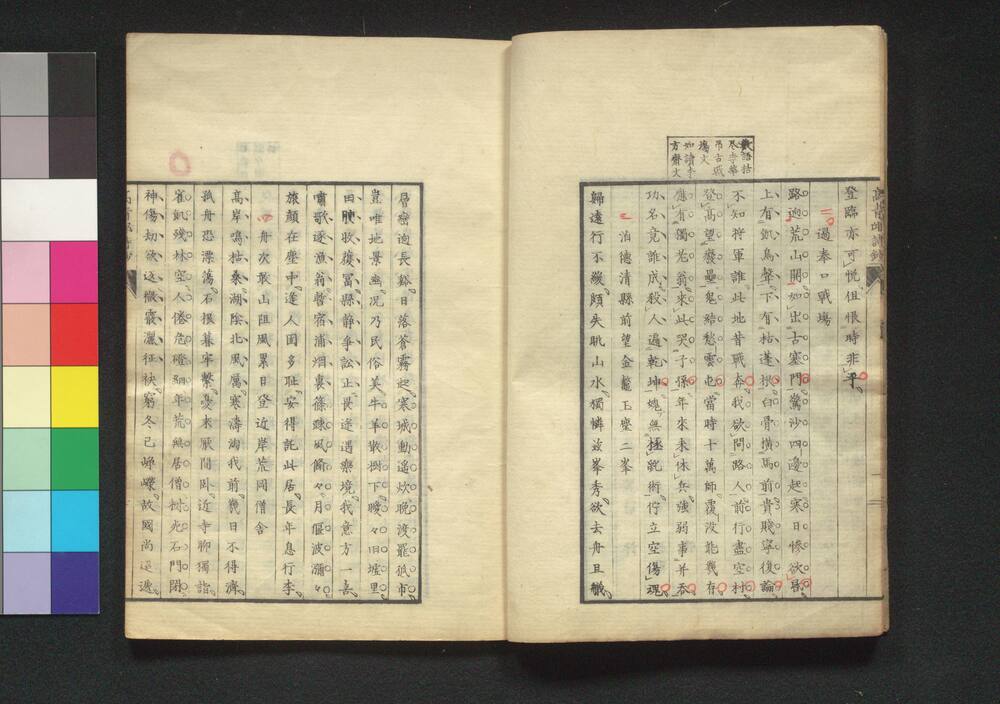 登臨亦可悦但恨時非平
過奉口戰場
路迴荒山開如出古塞門驚沙四邊起寒日慘欲昏
上有飢鳥聲下有枯蓬根白骨横馬前貴賤寧復論
不知将軍誰此地昔戰奔我欲問路人前行盡空村
登高望廢壘鬼結愁雲屯當時十萬師覆没能幾存
應有獨老翁來此哭子孫年來未休兵強弱事并吞
功名竟誰成殺人遍乾坤愧無拯亂術佇立空傷魂
泊德清縣前望金鼇玉塵二峯
歸遠行不緩頗失眺山水獨憐玆峯秀欲去舟且檥
數語括
尽李華
吊古戰
塲文
如讀李
方齋文
層巒迤長谿日落蒼霧起寒城動遥炊晚渡罷低市
豈唯地景幽况乃民俗美牛羊散樹下曖々旧墟里
田腴收復冨縣静争訟止畏途遇樂境我意方一喜
嘯歌逐漁翁暫宿浦烟裏篠疎風翛々月偃波瀰々
旅顔在塵中逢人固多耻安得託此居長年息行李
舟次敢山阻風累日登近岸荒岡僧舍
髙岸鳴枯桑湖陰北風厲寒濤洶我前幾日不得濟
孤舟恐漂蕩石根暮牢繋憂来厭閒卧近寺聊獨詣
雀飢殘林空人倦危磴細年荒無居僧樹死石門閉
神傷劫欲迄懺靈灑征袂窮冬已崢嶸故國尚迢遰